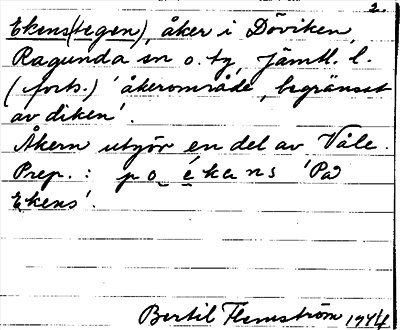 2.
Ekens(tegen), åker i Döviken,
Ragunda sn o. tg, Jämtl. l.
(forts.) 'åkerområde, begränsat
av diken'.
Åkern utgör en del av Våle.
Prep.: po ékans 'På
Ekens'.
Bertil Flemström 1944